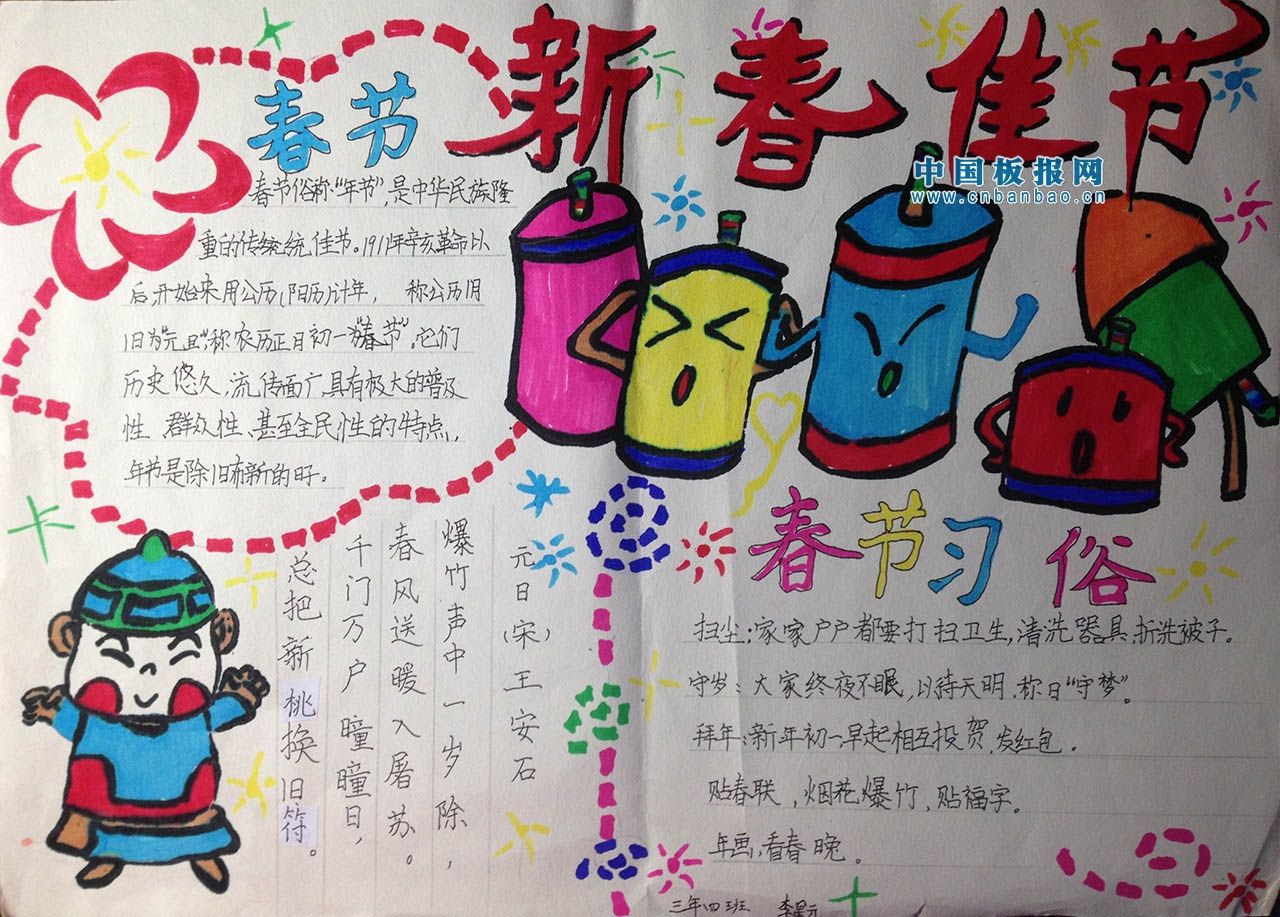 新春佳节
中国板报网
www.cnbanbao.cn
春节
春节俗称“年节”,是中华民族隆
重的传统统佳节。1911年辛亥革命以
后,开始来用公历(阳历)计年, 称公历1月
1日为“元旦”,称农历正日初一为“春节”。它们
历史悠久,流传面广具有极大的普及
性 群众性、甚至全民性的特点,
年节是除旧布新的日子。
元日(宋)王安石
爆竹声中一岁除,
春风送暖入屠苏。
千门万户瞳瞳日,
总把新桃换旧符。
春节习俗
扫尘;家家户户都要打扫卫生,清洗器具,折洗被子。
守岁:大家终夜不眠,以待天明,称日“守梦”。
拜年:新年初一,早起相互投贺,发红包。
贴春联,烟花爆竹,贴福字。
年画,看春晚。
三年四班 李星元